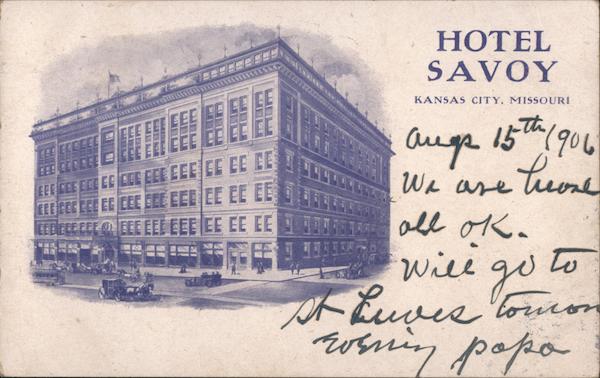 HOTEL
SAVOY
KANSAS CITY, MISSOURI
Augs 15th 1906
We are here
all ok.
Will go to
St Louis tomorrow
Evening papa